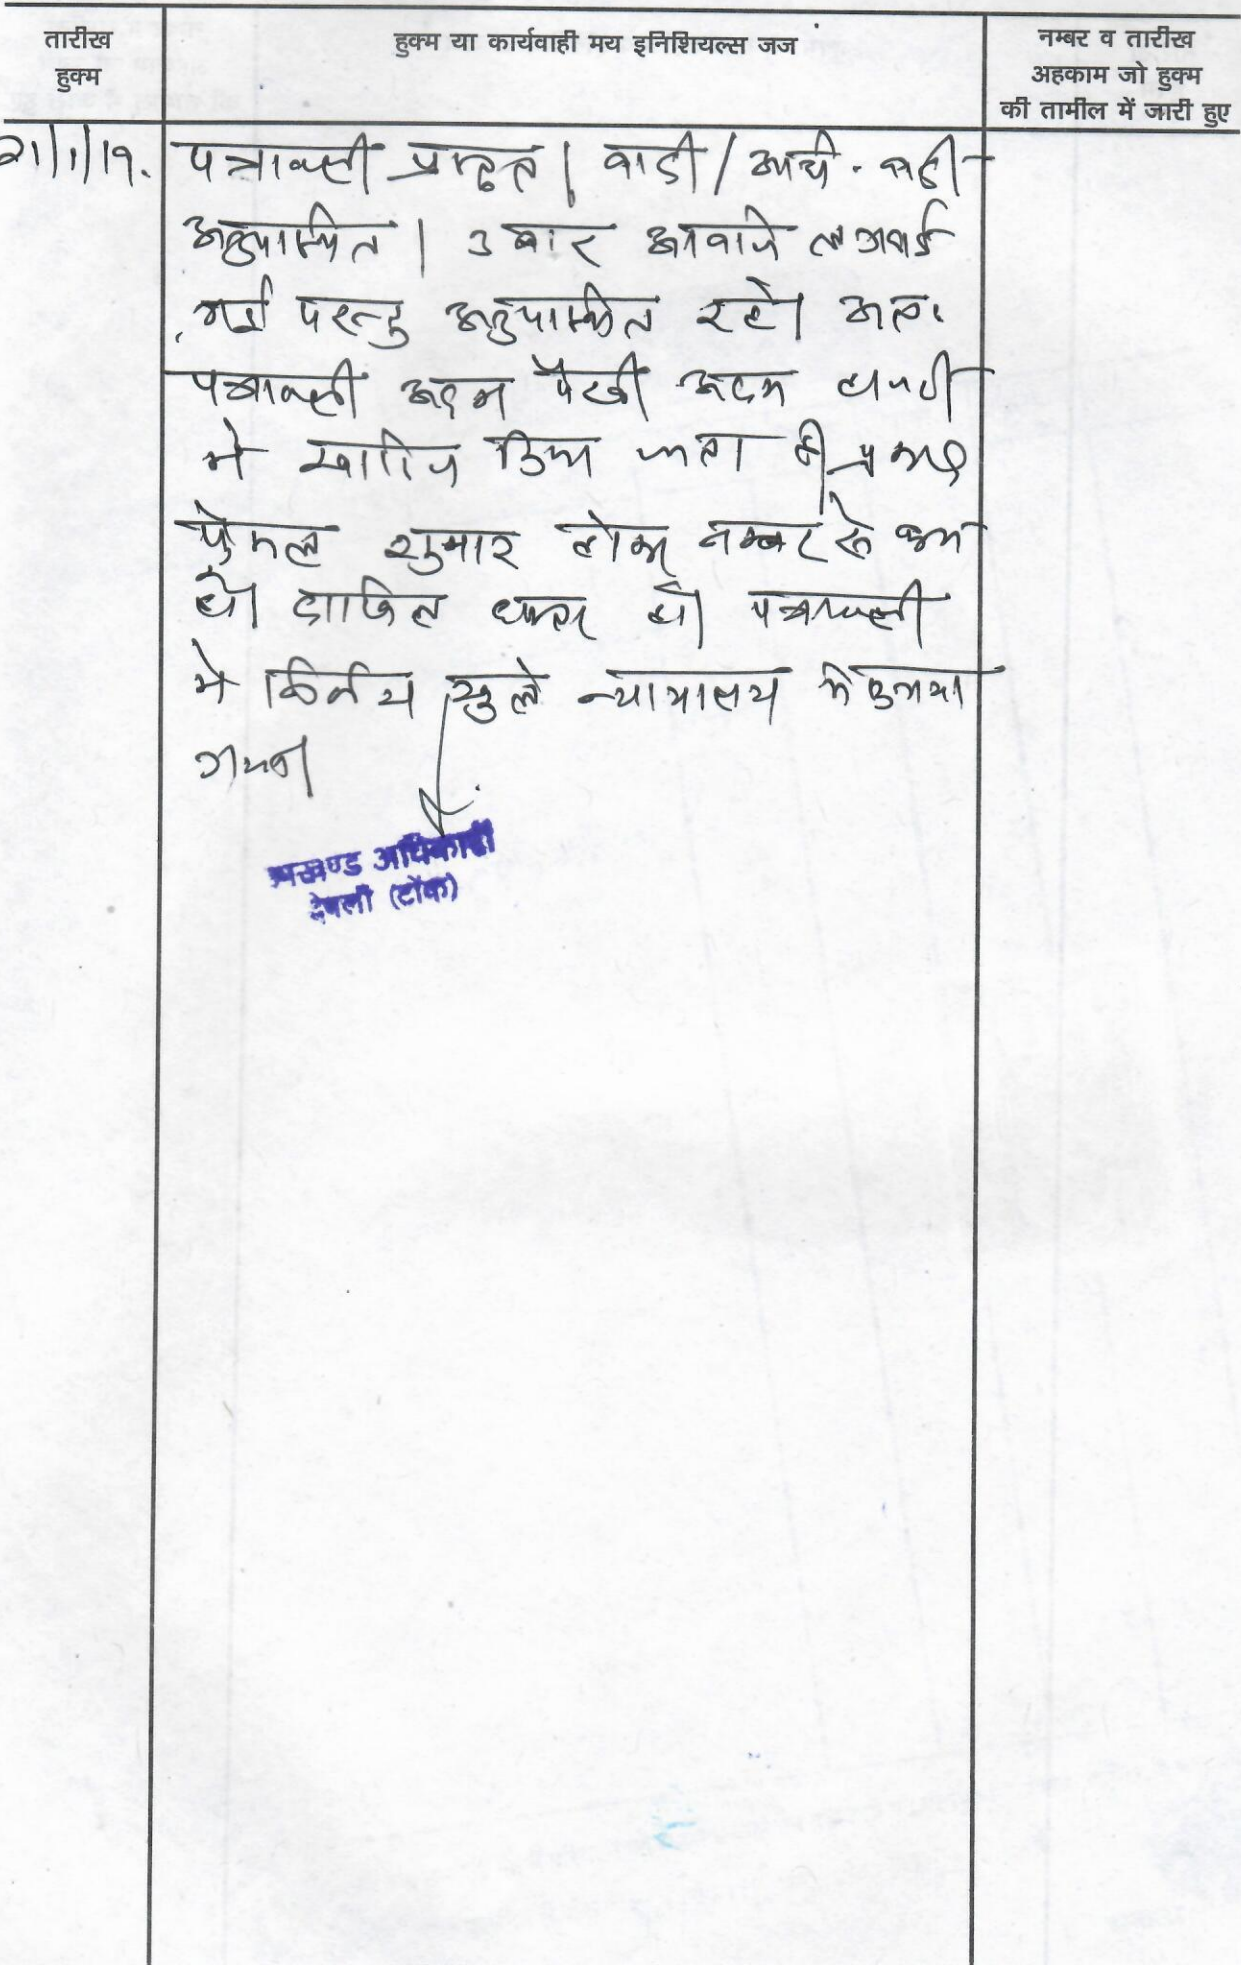 तारीख
हुक्म
हुक्म या कार्यवाही मय इनिशियल्स जज
नम्बर व तारीख
अहकाम जो हुक्म
की तामील में जारी हुए
21/1/19. पत्रावली प्रस्तुत। वादी /
अनुपस्थित। 3 बार आवाजे लगवाई
गई परन्तु अनुपस्थित रहे। अतः
पत्रावली अदम पैरवी अदम
मे खारिज किया जाता है।
फैसल शुमार होकर नम्बर से कम
हो दाखिल दफ्तर हो। पत्रावली
मे निर्णय खुले न्यायालय मे सुनाया
गया।
उपखण्ड अधिकारी
देवली (टोंक)